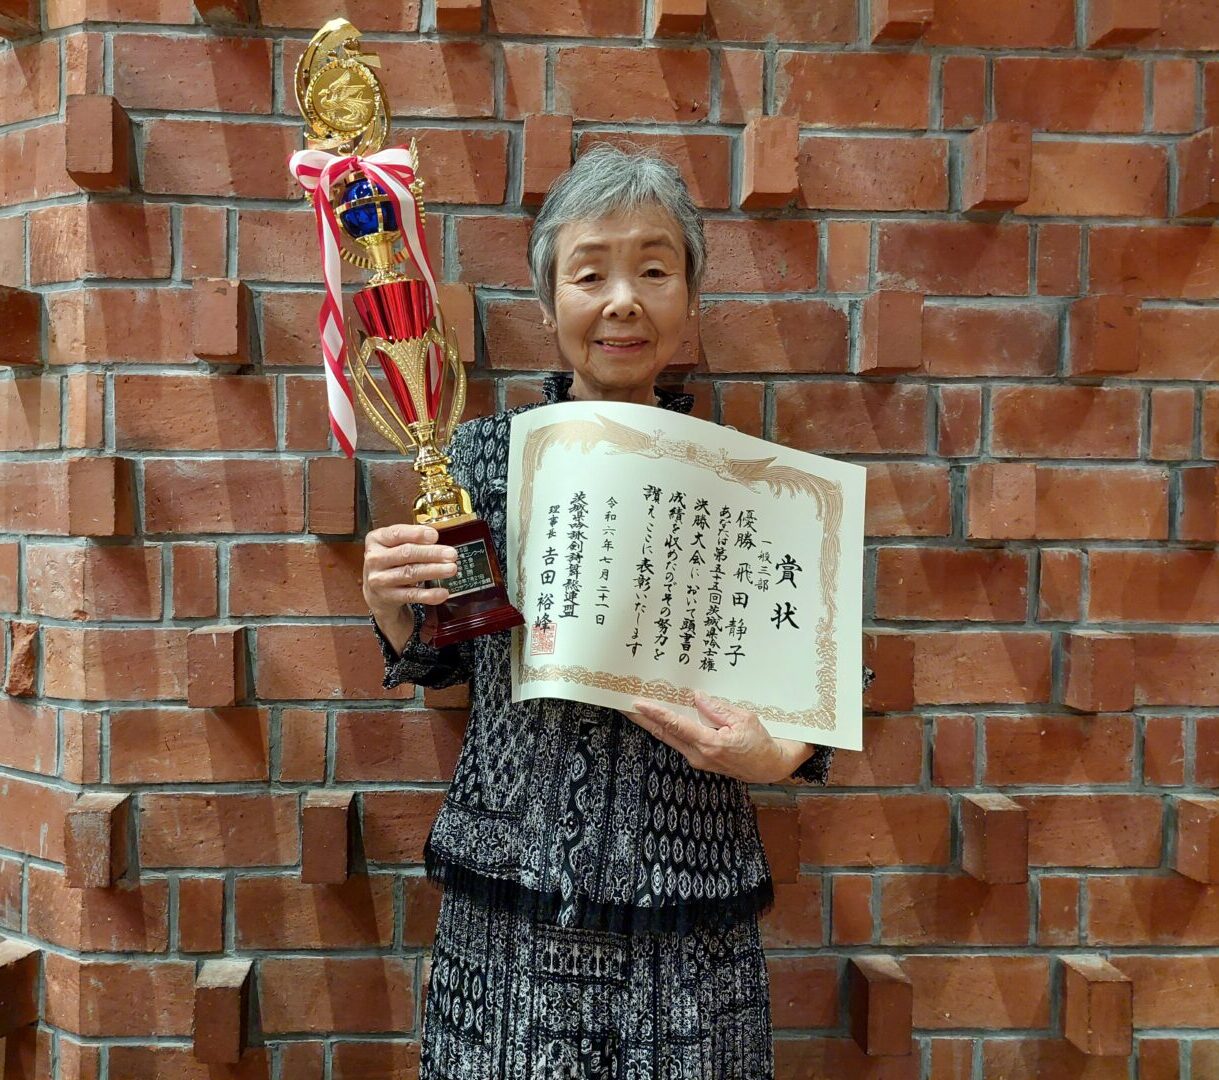 賞状
一般三部
優勝 飛田 静子
あなたは第五十五回茨城県吟士権
決勝大会において頭書の
成績を収めたのでその努力を
讃えここに表彰いたします
令和六年七月二十一日
茨城県吟詠剣詩舞総連盟
理事長 吉田 裕峰